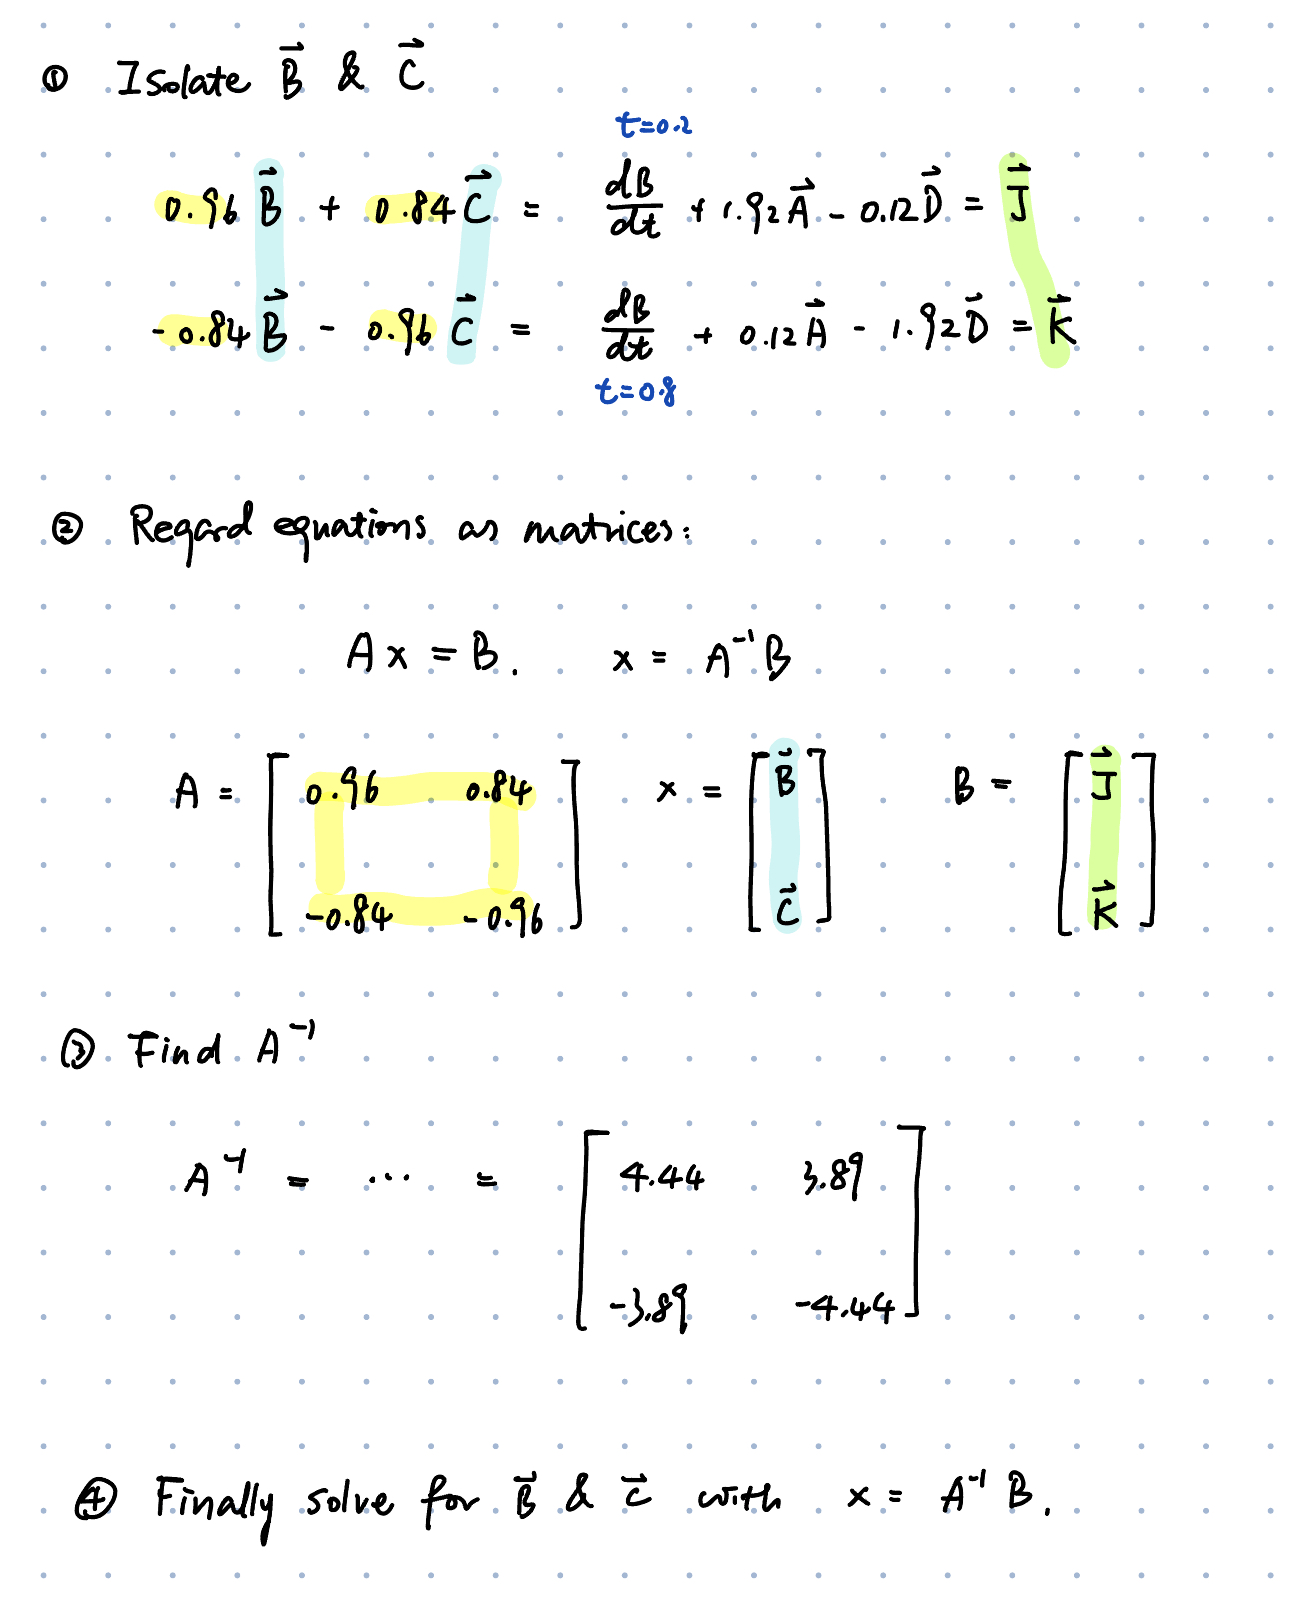 ① Isolate B⃗ & C⃗
t=0.2
0.96 B⃗ + 0.84 C⃗ = dB/dt + 1.92 A⃗ - 0.12 D⃗ = J⃗
-0.84 B⃗ - 0.96 C⃗ = dB/dt + 0.12 A⃗ - 1.92 D⃗ = K⃗
t=0.8
② Regard equations as matrices:
Ax = B. x = A⁻¹B
A = [ 0.96 0.84 x = [ B⃗ ] B = [ J⃗ ]
-0.84 -0.96 ] C⃗ K⃗
③ Find A⁻¹
A⁻¹ = ... = [ 4.44 3.89
-3.89 -4.44 ]
④ Finally solve for B⃗ & C⃗ with x = A⁻¹ B.